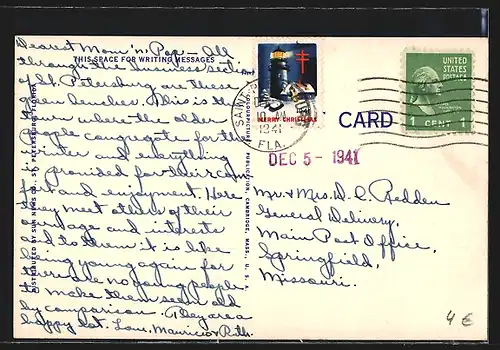 THIS SPACE FOR WRITING MESSAGES
Dearest Mom 'n' Pop - All
through the business section
of St. Petersburg are these
green benches. This is the
town where the older
people congregate for the
winter and everything
is provided for their com-
fort and enjoyment. Here
they meet others of their
own age and interests
and to them it is like
being young again for
there are no young people
to make them seem old
by comparison. They are a
happy lot. Love, Maurice & Ruth.
DISTRIBUTED BY SUN NEWS CO., ST. PETERSBURG, FLORIDA
COLOURPICTURE PUBLICATION, CAMBRIDGE, MASS., U.S.A.
SAINT
1941
FLA.
MERRY CHRISTMAS
UNITED
STATES
POSTAGE
1 CENT 1
CARD
DEC 5 - 1941
Mr. & Mrs. D. C. Redden
General Delivery,
Main Post Office,
Springfield,
Missouri.
4 €